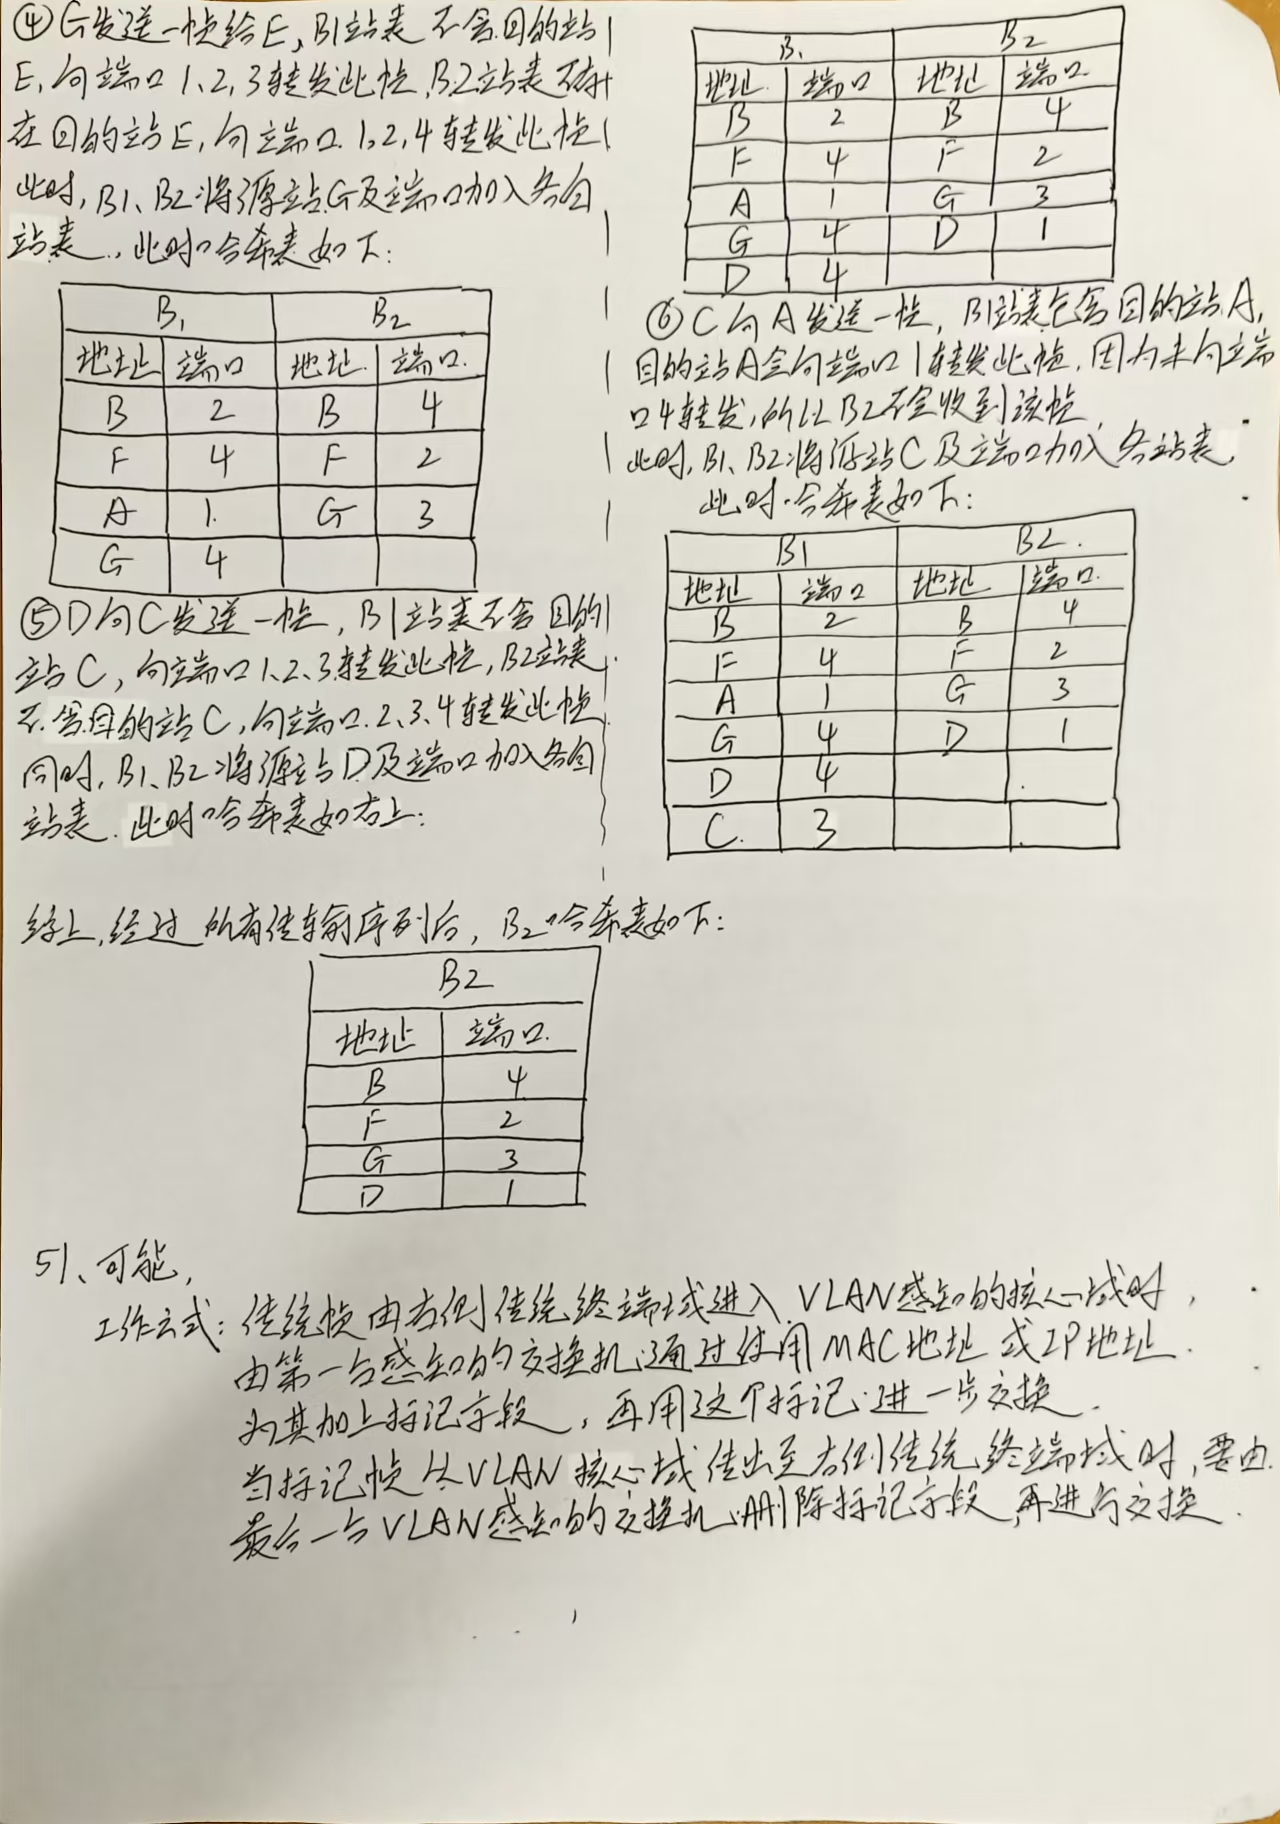 ④G发送一帧给E,B1站表不含目的站
E,向端口1、2、3转发此帧,B2站表不存
在目的站E,向端口1,2,4转发此帧
此时,B1、B2将源站G及端口加入各自
站表.,此时哈希表如下:
B1 B2
地址 端口 地址 端口.
B 2 B 4
F 4 F 2
A 1. G 3
G 4
⑤D向C发送一帧,B1站表不含目的
站C,向端口1、2、3转发此帧,B2站表
不含目的站C,向端口.2、3、4转发此帧
同时,B1、B2将源站D及端口加入各自
站表.此时哈希表如右上:
B1 B2
地址 端口 地址 端口.
B 2 B 4
F 4 F 2
A 1 G 3
G 4 D 1
D 4
⑥C向A发送一帧,B1站表包含目的站A,
目的站A会向端口1转发此帧.因为未向端
口4转发,所以B2不会收到该帧
此时,B1、B2将源站C及端口加入各站表,
此时哈希表如下:
B1 B2.
地址 端口 地址 端口.
B 2 B 4
F 4 F 2
A 1 G 3
G 4 D 1
D 4
C. 3
综上,经过所有传输序列后,B2哈希表如下:
B2
地址 端口.
B 4
F 2
G 3
D 1
51、可能,
工作方式:传统帧由右侧传统终端域进入VLAN感知的核心域时,
由第一台感知的交换机通过使用MAC地址或IP地址.
为其加上标记字段,再用这个标记进一步交换.
当标记帧从VLAN核心域传出至右侧传统终端域时,要由.
最后一台VLAN感知的交换机删除标记字段,再进行交换.